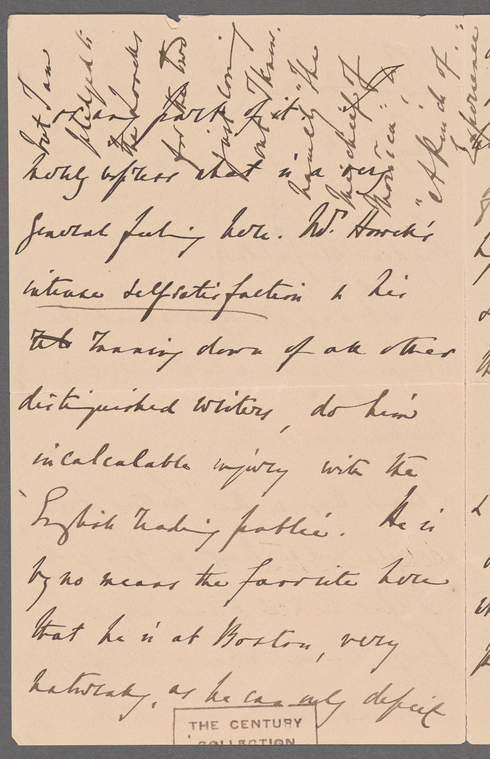 but I am
pledged to
for the two
just coming
namely "The
mischief of
Monica", &
"A Kind of
part of it
merely express what is a very
general feeling here. Mr. Howells'
intense selfsatisfaction & his
running down of all other
distinguished writers, do him
incalculable injury with the
English reading public. He is
by no means the favorite here
that he is at Boston, very
naturally, as he can only depict
THE CENTURY
COLLECTION